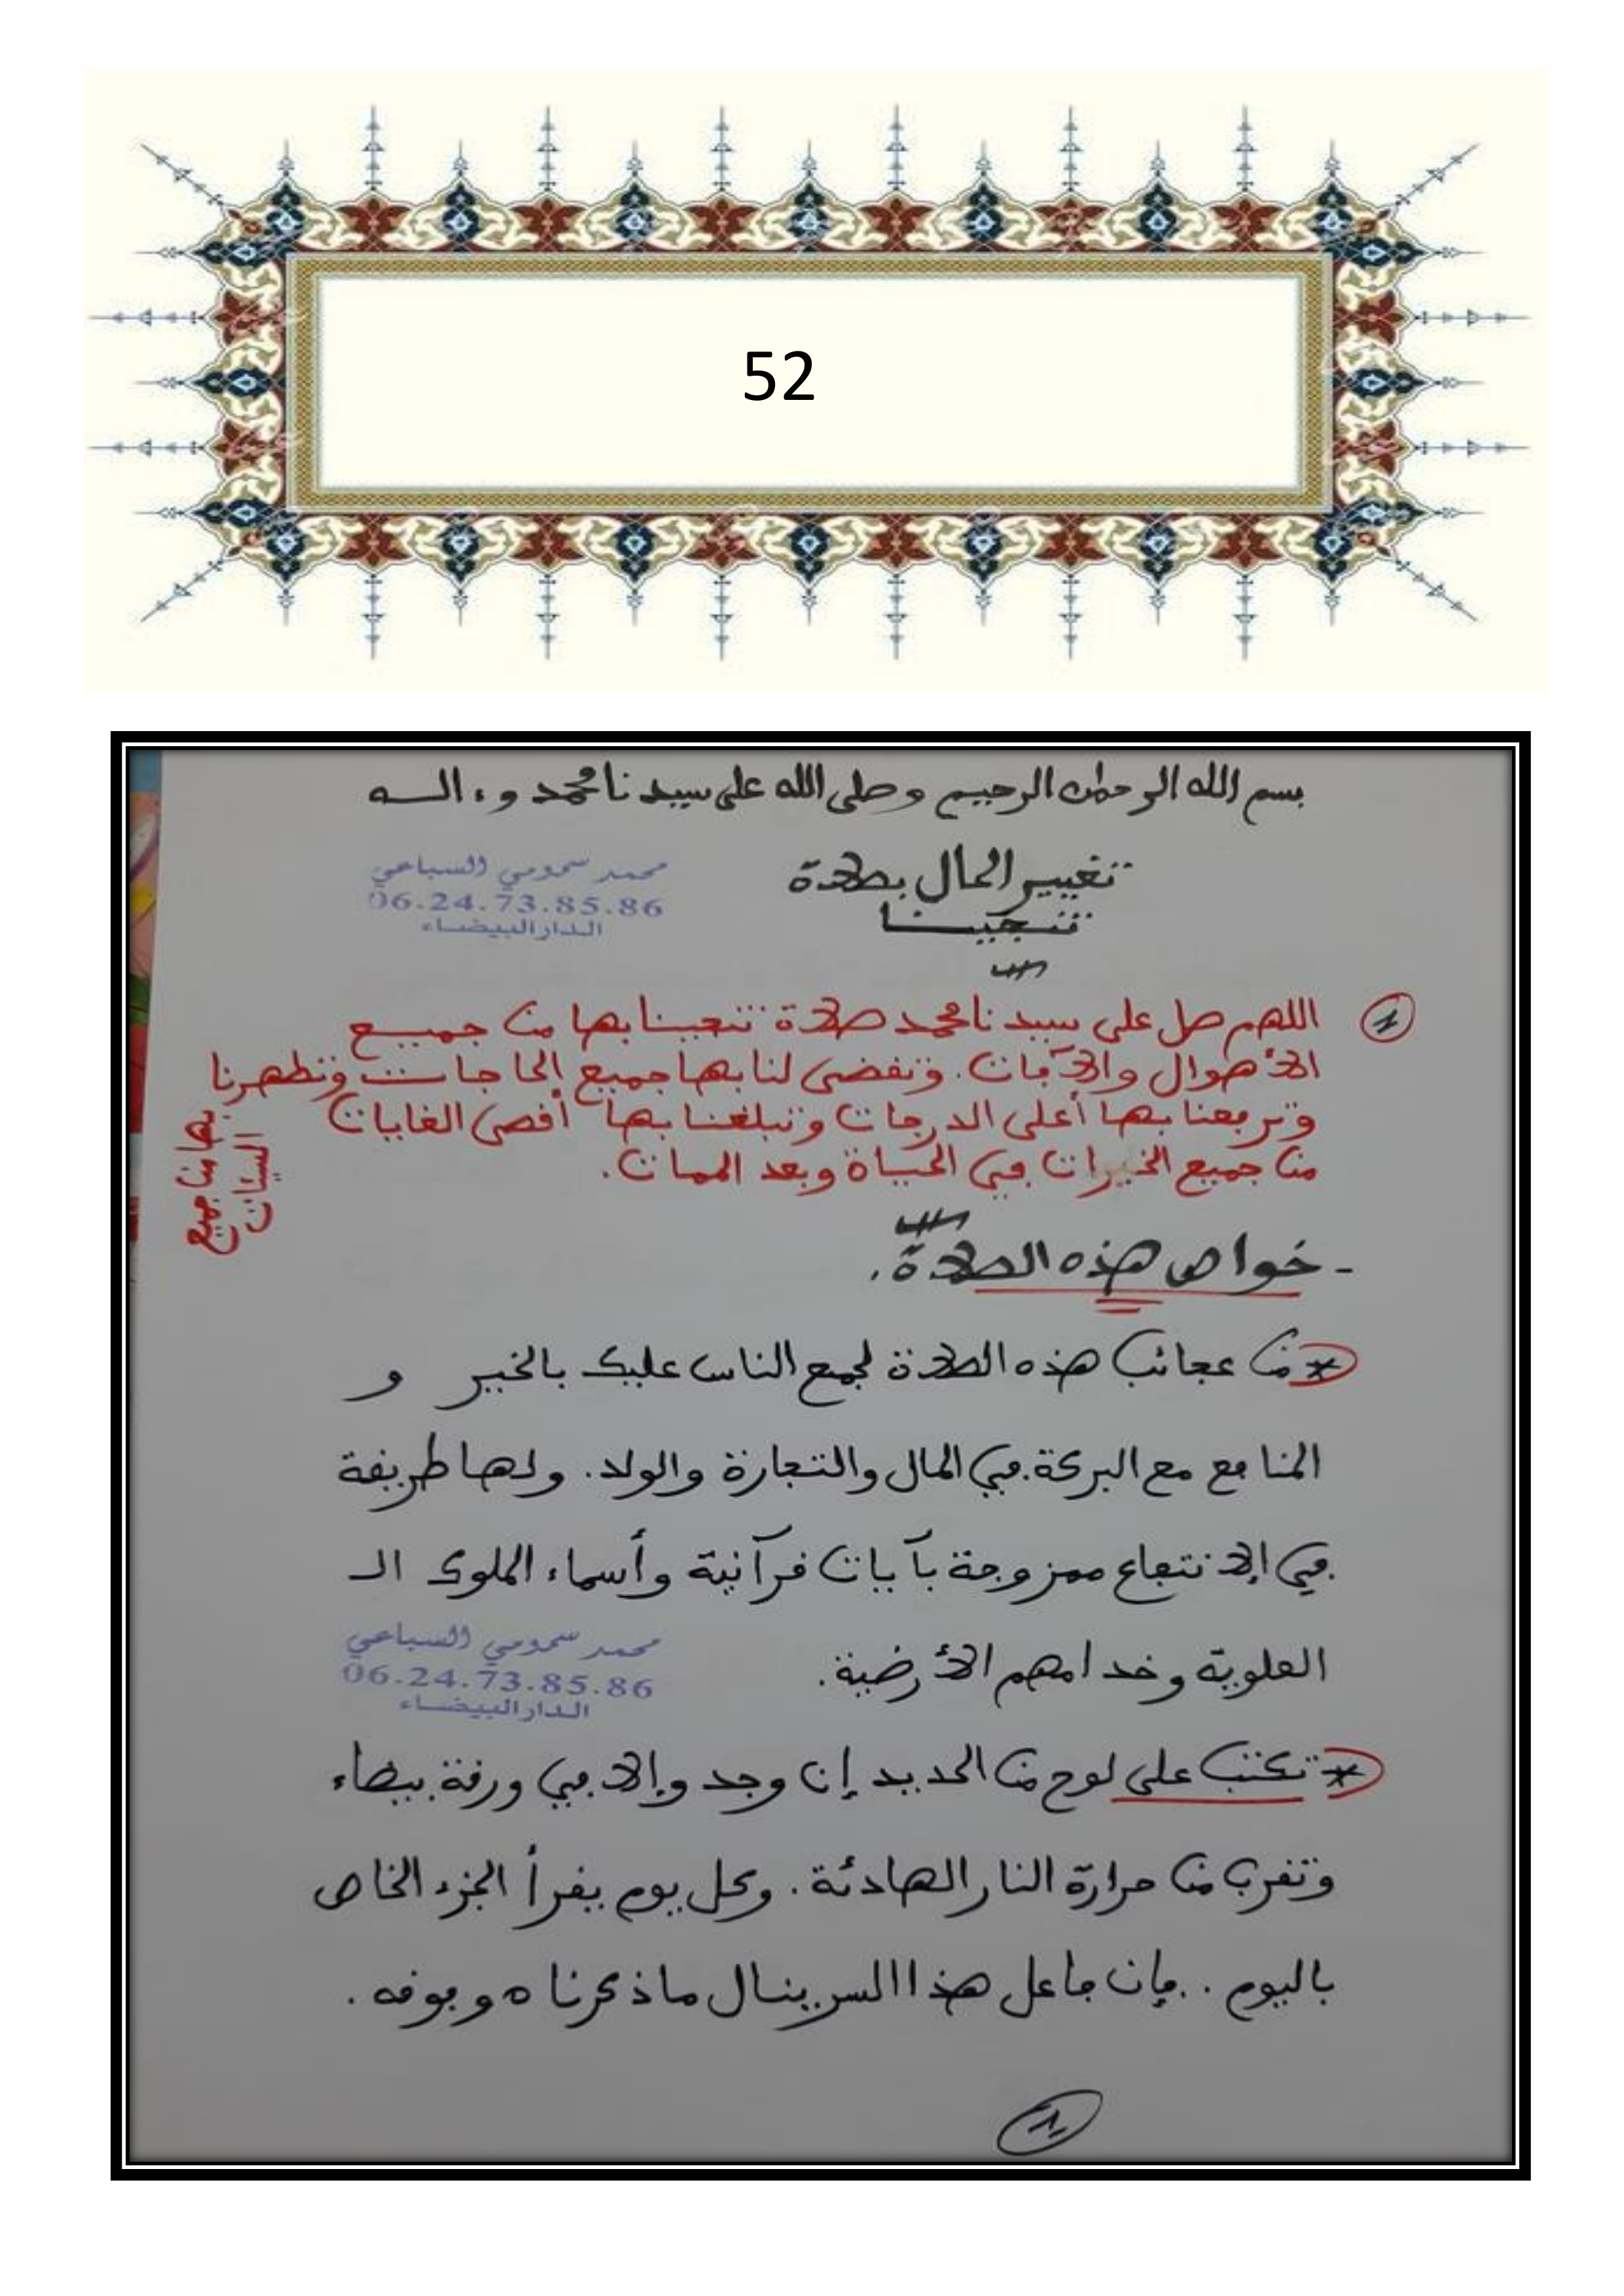 52
بسم الله الرحمان الرحيم وصلى الله على سيدنا محمد وءاله
تغيير الحال بصلاة
تنجينا
محمد سمومي السباعي
06.24.73.85.86
الدار البيضاء
1
اللهم صل على سيدنا محمد صلاة تنجينا بها من جميع
الأهوال والآفات. وتقضي لنا بها جميع الحاجات وتطهرنا
بها من جميع
السيئات
وترفعنا بها أعلى الدرجات وتبلغنا بها أقصى الغايات
من جميع الخيرات في الحياة وبعد الممات.
- خواص هذه الصلاة.
* من عجائب هذه الصلاة لجمع الناس عليك بالخير و
المنافع مع البركة في المال والتجارة والولد. ولها طريقة
في الإنتفاع ممزوجة بآيات قرآنية وأسماء الملوك الـ
العلوية وخدامهم الأرضية.
محمد سمومي السباعي
06.24.73.85.86
الدار البيضاء
* تكتب على لوح من الحديد إن وجد وإلا في ورقة بيضاء
وتقرب من حرارة النار الهادئة. وكل يوم يقرأ الجزء الخاص
باليوم.. فإن فاعل هذا السر ينال ما ذكرناه وفوقه.
1